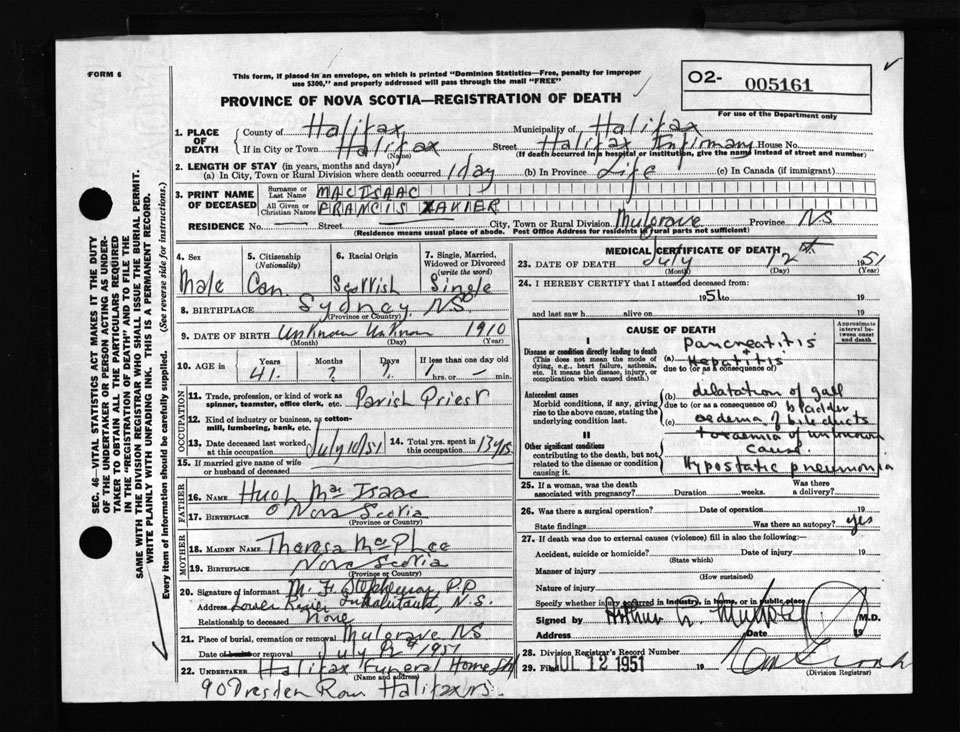 FORM 6
This form, if placed in an envelope, on which is printed "Dominion Statistics—Free, penalty for improper
use $300," and properly addressed will pass through the mail "FREE"
PROVINCE OF NOVA SCOTIA—REGISTRATION OF DEATH
O2- 005161
For use of the Department only
1. PLACE OF DEATH
County of Halifax Municipality of Halifax
If in City or Town Halifax (Name) Street Halifax Infirmary House No.
(If death occurred in a hospital or institution, give the name instead of street and number)
2. LENGTH OF STAY (in years, months and days)
(a) In City, Town or Rural Division where death occurred 1 day (b) In Province Life (c) In Canada (if immigrant)
3. PRINT NAME OF DECEASED
Surname or Last Name MACISAAC
All Given or Christian Names FRANCIS XAVIER
RESIDENCE No. — Street City, Town or Rural Division Mulgrave Province NS
(Residence means usual place of abode. Post Office Address for residents of rural parts not sufficient)
4. Sex Male
5. Citizenship (Nationality) Can.
6. Racial Origin Scottish
7. Single, Married, Widowed or Divorced (write the word) Single
8. BIRTHPLACE Sydney, NS
(Province or Country)
9. DATE OF BIRTH Unknown Unknown 1910
(Month) (Day) (Year)
10. AGE in Years Months Days If less than one day old
41 ? ? hrs. or — min.
OCCUPATION
11. Trade, profession, or kind of work as spinner, teamster, office clerk, etc. Parish Priest
12. Kind of industry or business, as cotton-mill, lumbering, bank, etc.
13. Date deceased last worked at this occupation July 10/51
14. Total yrs. spent in this occupation 13 yrs.
15. If married give name of wife or husband of deceased
FATHER
16. NAME Hugh MacIsaac
17. BIRTHPLACE Nova Scotia
(Province or Country)
MOTHER
18. MAIDEN NAME Theresa MacPhee
19. BIRTHPLACE Nova Scotia
(Province or Country)
20. Signature of informant M. F. P.P.
Address Lower River Inhabitants, N.S.
Relationship to deceased None
21. Place of burial, cremation or removal Mulgrave NS
Date of burial or removal July 12 1951
22. UNDERTAKER Halifax Funeral Home
(Name and address)
90 Dresden Row Halifax NS.
MEDICAL CERTIFICATE OF DEATH
23. DATE OF DEATH July 12 1951
(Month) (Day) (Year)
24. I HEREBY CERTIFY that I attended deceased from
1951 to 19
and last saw h alive on 19
CAUSE OF DEATH
Approximate interval between cause and death
I
Disease or condition directly leading to death
(This does not mean the mode of dying, e.g., heart failure, asthenia, etc. It means the disease, injury, or complication which caused death.
(a) Pancreatitis + Hepatitis
due to (or as a consequence of)
Antecedent causes
Morbid conditions, if any, giving rise to the above cause, stating the underlying condition last.
(b) dilatation of gall bladder
due to (or as a consequence of)
(c) oedema of bile ducts
toxaemia of unknown cause.
II
Other significant conditions
contributing to the death, but not related to the disease or condition causing it.
Hypostatic pneumonia
25. If a woman, was the death associated with pregnancy? Duration weeks. Was there a delivery?
26. Was there a surgical operation? Date of operation 19
State findings Was there an autopsy? yes
27. If death was due to external causes (violence) fill in also the following:—
Accident, suicide or homicide? Date of injury 19
(State which)
Manner of injury
(How sustained)
Nature of injury
Specify whether injury occurred in industry, in home, or in public place
Signed by Arthur M.D.
Address Date
28. Division Registrar's Record Number
29. Filed JUL 12 1951 19
(Division Registrar)
SEC. 46—VITAL STATISTICS ACT MAKES IT THE DUTY
OF THE UNDERTAKER OR PERSON ACTING AS UNDER-
TAKER TO OBTAIN ALL THE PARTICULARS REQUIRED
IN THE "REGISTRATION OF DEATH" AND TO FILE THE
SAME WITH THE DIVISION REGISTRAR WHO SHALL ISSUE THE BURIAL PERMIT.
WRITE PLAINLY WITH UNFADING INK. THIS IS A PERMANENT RECORD.
Every item of information should be carefully supplied. (See reverse side for instructions.)